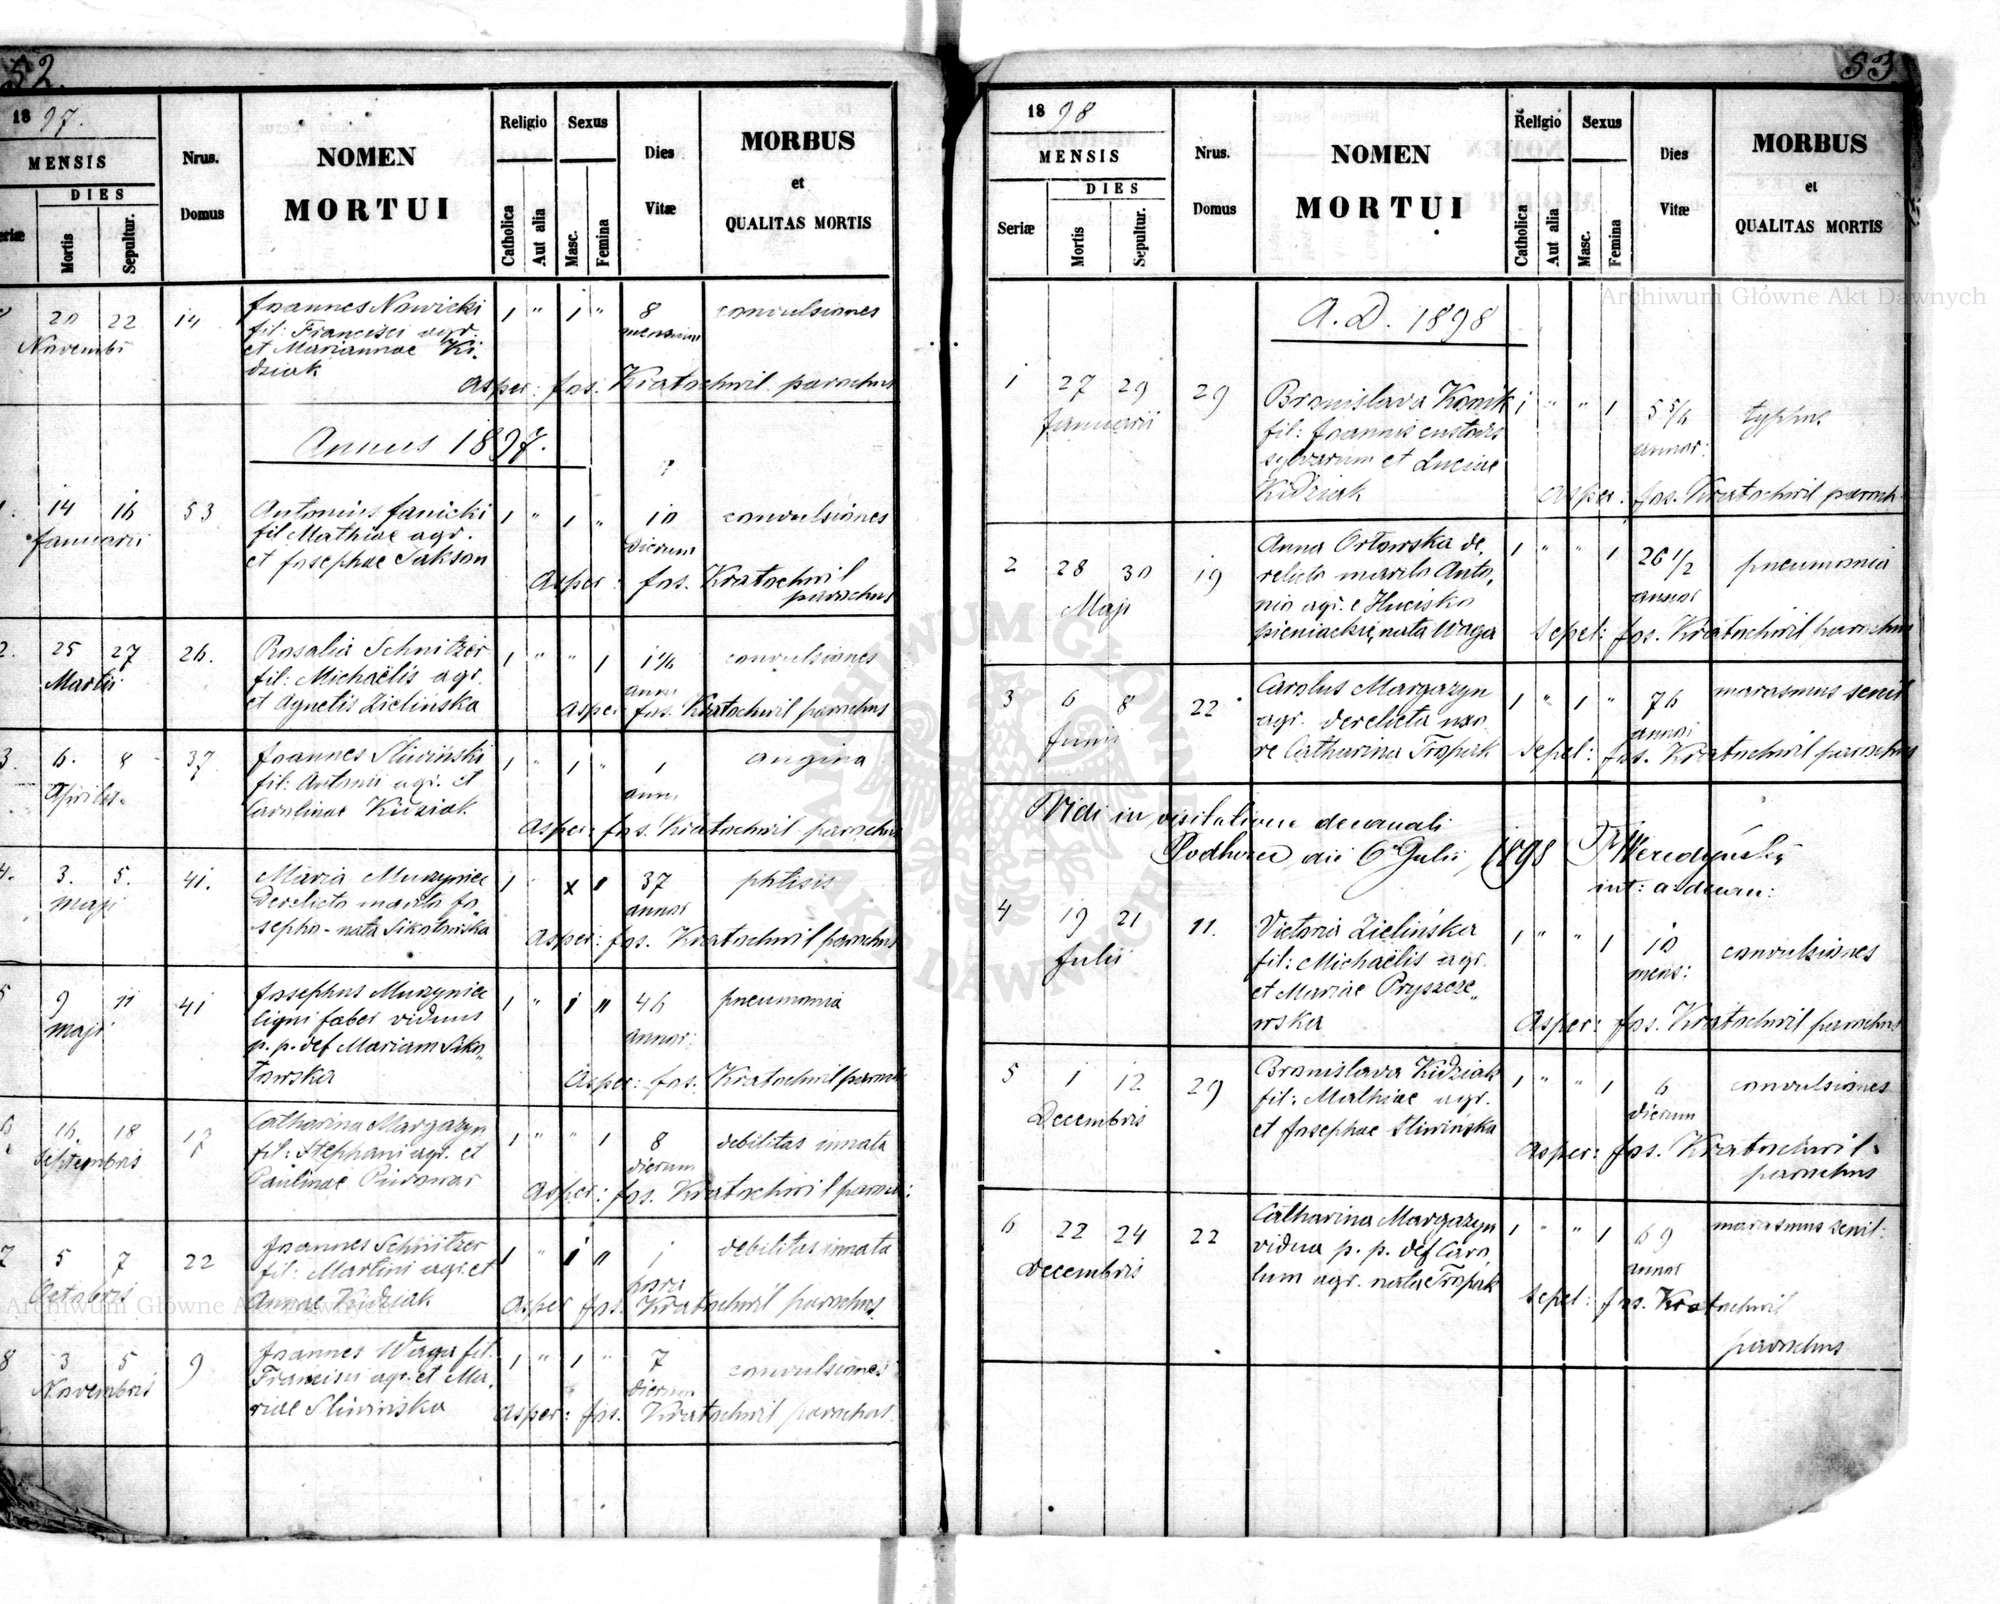 52.
18 97.
MENSIS
DIES
Mortis
Sepultur.
Nrus.
Domus
NOMEN
MORTUI
Religio
Catholica
Aut alia
Sexus
Masc.
Femina
Dies
Vitæ
MORBUS
et
QUALITAS MORTIS
20 22 14 Joannes Nowicki 1 " 1 " 8 convulsiones
Novembr fil: Francisci agr. mensium
et Mariannae Ki-
dziak
Asper: Jos. Kratochwil parochus
Annus 1897.
1. 14 16 53 Antonius Janicki 1 " 1 " 10 convulsiones
Januarii fil Mathiae agr. dierum
et Josephae Jakson
Asper: Jos. Kratochwil
parochus
2. 25 27 26. Rosalia Schnitzer 1 " " 1 convulsiones
Martii fil: Michaëlis agr.
et Agnetis Zielińska
Asper: Jos. Kratochwil parochus
3. 6. 8 37 Joannes Śliwiński 1 " 1 " 1 angina
Aprilis fil: Antonii agr. et ann.
Carolinae Kidziak
Asper: Jos. Kratochwil parochus
4. 3. 5. 41. Maria Muzyniec 1 " x 1 37 phtisis
maji derelicto marito Jo annor
sepho - nata Sikotowska
Asper: Jos. Kratochwil parochus
5 9 11 41 Josephus Muzyniec 1 " 1 " 46 pneumonia
maji ligni faber viduus annor:
p. p. def Mariam Siko„
towska
Asper: Jos. Kratochwil paroch
6 16. 18 17 Catharina Margazyn 1 " " 1 8 debilitas innata
Septembris fil: Stephani agr. et dierum
Paulinae Piwowar
Asper: Jos. Kratochwil paroch:
7 5 7 22 Joannes Schnitzer 1 " 1 " 1 debilitas innata
Octobris fil: Martini agr. et hora
Annae Kidziak
Asper Jos. Kratochwil parochus
8 3 5 9 Joannes Waga fil. 1 " 1 " 7 convulsiones
Novembris Francisci agr. et Ma„ dierum
riae Śliwińska
Asper: Jos. Kratochwil parochus
53
18 98
MENSIS
DIES
Seriæ
Mortis
Sepultur.
Nrus.
Domus
NOMEN
MORTUI
Religio
Catholica
Aut alia
Sexus
Masc.
Femina
Dies
Vitæ
MORBUS
et
QUALITAS MORTIS
A.D. 1898
1 27 29 29 Bronislava Konik 1 " " 1 5 5/6 typhus
Januarii fil: Joannis custodis annor:
sylvarum et Luciae
Kidziak
Asper: Jos. Kratochwil paroch
2 28 30 19 Anna Ortowska de„ 1 " " 1 26 1/2 pneumonia
Maji relicto marito Anto„ annor
nio agr. e Hucisko
pieniackie, nata Waga
Sepel: Jos. Kratochwil parochus
3 6 8 22 Carolus Margazyn 1 " 1 " 76 marasmus senil
Junii agr. derelicta uxo annor
re Catharina Tropak
Sepel: Jos. Kratochwil parochus
Vidi in visitatione decanali
Podhorce die 6 Julii 1898
int: a decan:
4 19 21 11. Victoria Zielińska 1 " " 1 10 convulsiones
Julii fil: Michaëlis agr. mens:
et Mariae Pryszcze„
wska
Asper: Jos. Kratochwil parochus
5 1 12 29 Bronislava Kidziak 1 " " 1 6 convulsiones
Decembris fil: Mathiae agr. dierum
et Josephae Śliwińska
Asper: Jos. Kratochwil
parochus
6 22 24 22 Catharina Margazyn 1 " " 1 69 marasmus senil:
decembris vidua p. p. def Caro annor
lum agr. nata Tropak
Sepel: Jos. Kratochwil
parochus
Archiwum Główne Akt Dawnych
Archiwum Główne Akt Dawnych
ARCHIWUM GŁÓWNE AKT DAWNYCH